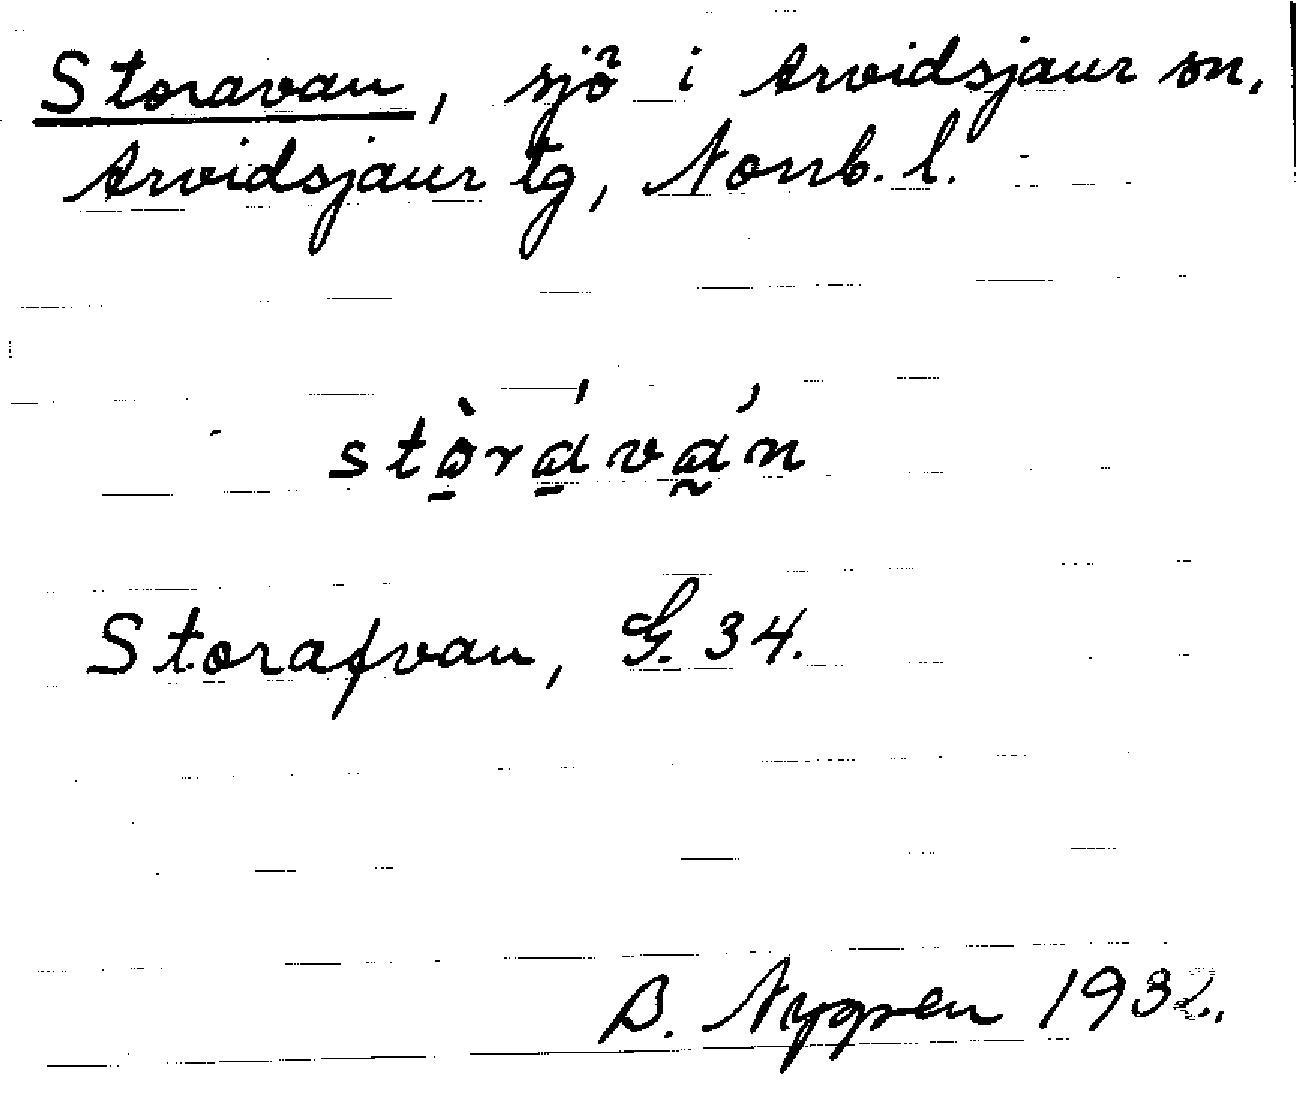 Storavan, sjö i Arvidsjaur sn,
Arvidsjaur tg, Norrb. l.
stò̠rá̠vá̰n
Storafvan, G. 34.
B. Nygren 1932.